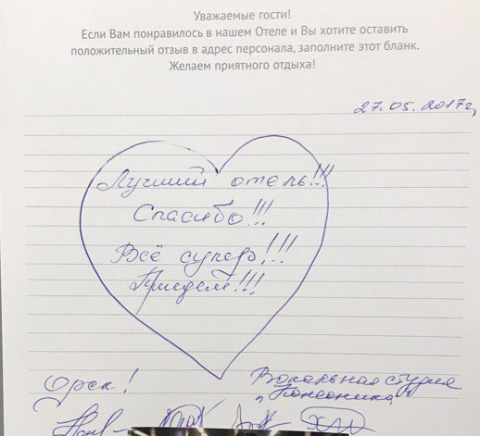 Уважаемые гости!
Если Вам понравилось в нашем Отеле и Вы хотите оставить
положительный отзыв в адрес персонала, заполните этот бланк.
Желаем приятного отдыха!
27.05.2017г,
Лучший отель!!!
Спасибо!!!
Всё супер!!!
Приедем!!!
Орск!
Вокальная студия